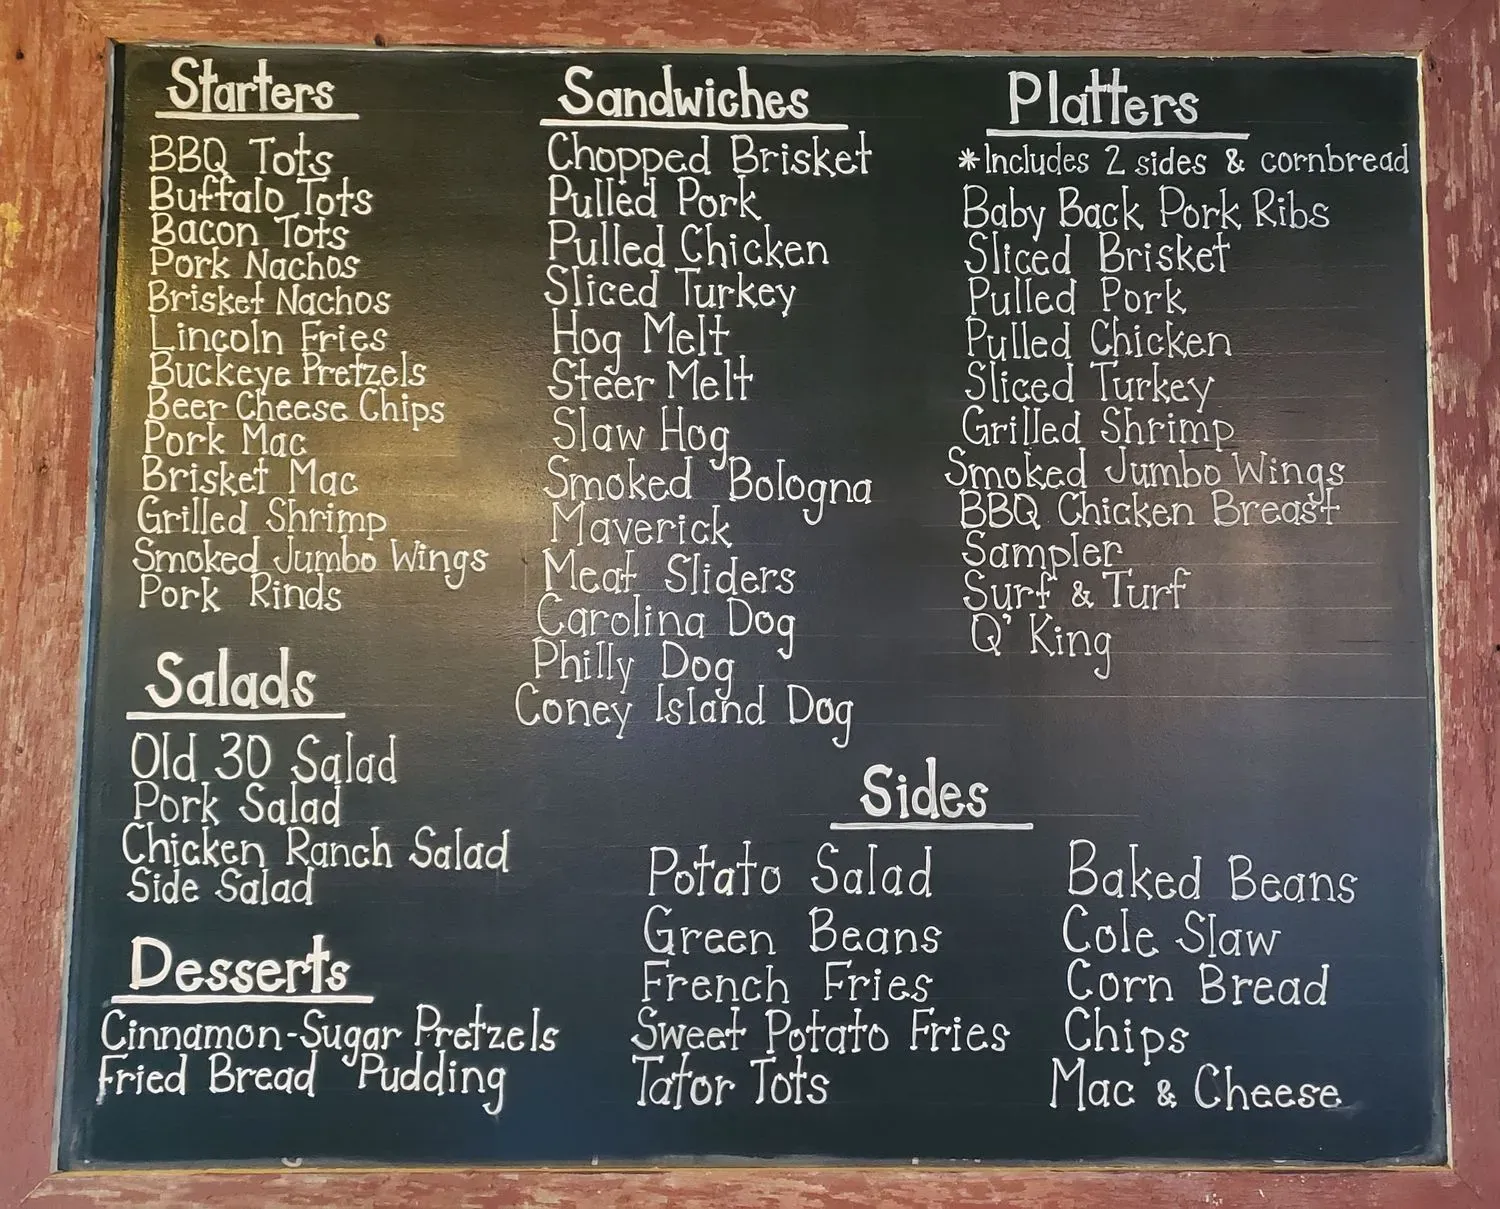 Starters
BBQ Tots
Buffalo Tots
Bacon Tots
Pork Nachos
Brisket Nachos
Lincoln Fries
Buckeye Pretzels
Beer Cheese Chips
Pork Mac
Brisket Mac
Grilled Shrimp
Smoked Jumbo Wings
Pork Rinds
Salads
Old 30 Salad
Pork Salad
Chicken Ranch Salad
Side Salad
Desserts
Cinnamon-Sugar Pretzels
Fried Bread Pudding
Sandwiches
Chopped Brisket
Pulled Pork
Pulled Chicken
Sliced Turkey
Hog Melt
Steer Melt
Slaw Hog
Smoked Bologna
Maverick
Meat Sliders
Carolina Dog
Philly Dog
Coney Island Dog
Platters
*Includes 2 sides & cornbread
Baby Back Pork Ribs
Sliced Brisket
Pulled Pork
Pulled Chicken
Sliced Turkey
Grilled Shrimp
Smoked Jumbo Wings
BBQ Chicken Breast
Sampler
Surf & Turf
Q' King
Sides
Potato Salad
Green Beans
French Fries
Sweet Potato Fries
Tator Tots
Baked Beans
Cole Slaw
Corn Bread
Chips
Mac & Cheese